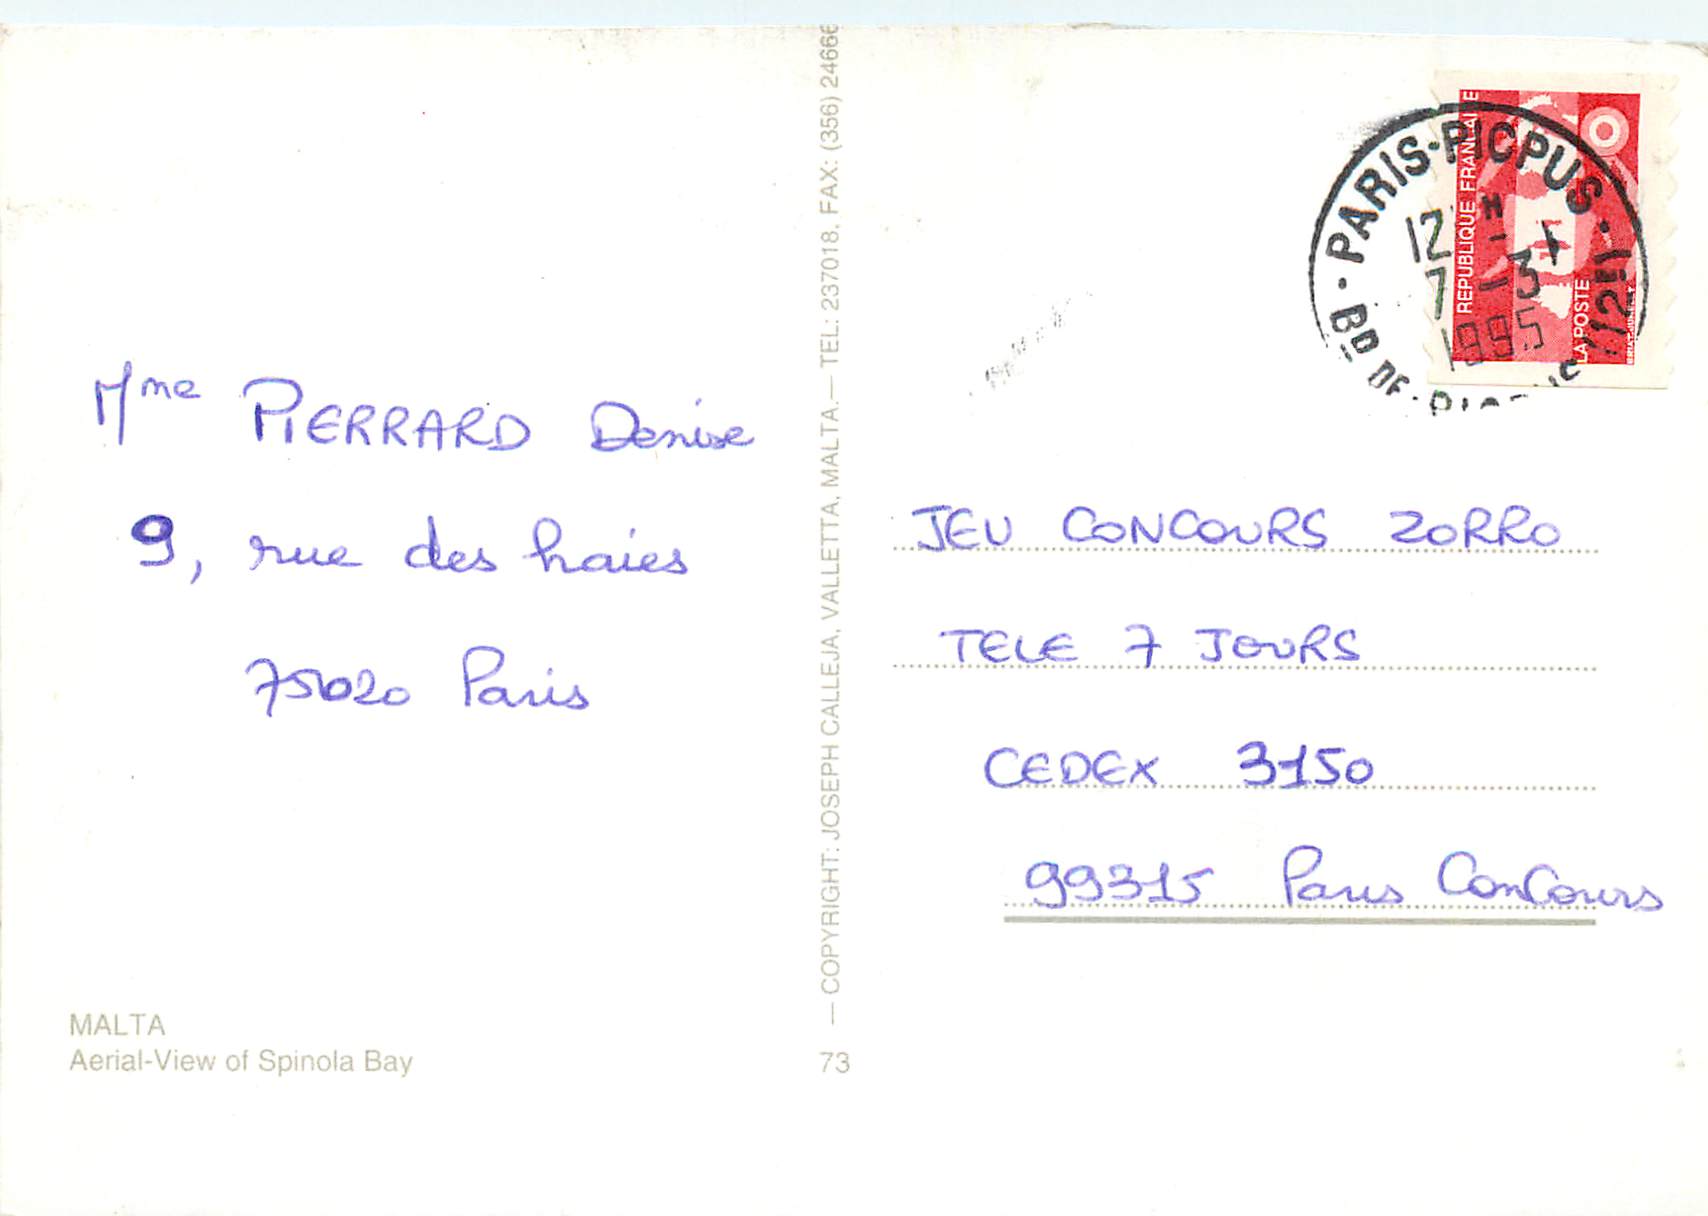 Mme PIERRARD Denise
9, rue des haies
75020 Paris
MALTA
Aerial-View of Spinola Bay
— COPYRIGHT: JOSEPH CALLEJA, VALLETTA, MALTA.— TEL: 237018, FAX: (356) 24666
73
REPUBLIQUE FRANCAISE
LA POSTE
PARIS-PICPUS
12 H
7 - 3
1995
BD DE
JEU CONCOURS ZORRO
TELE 7 JOURS
CEDEX 3150
99315 Paris ConCours